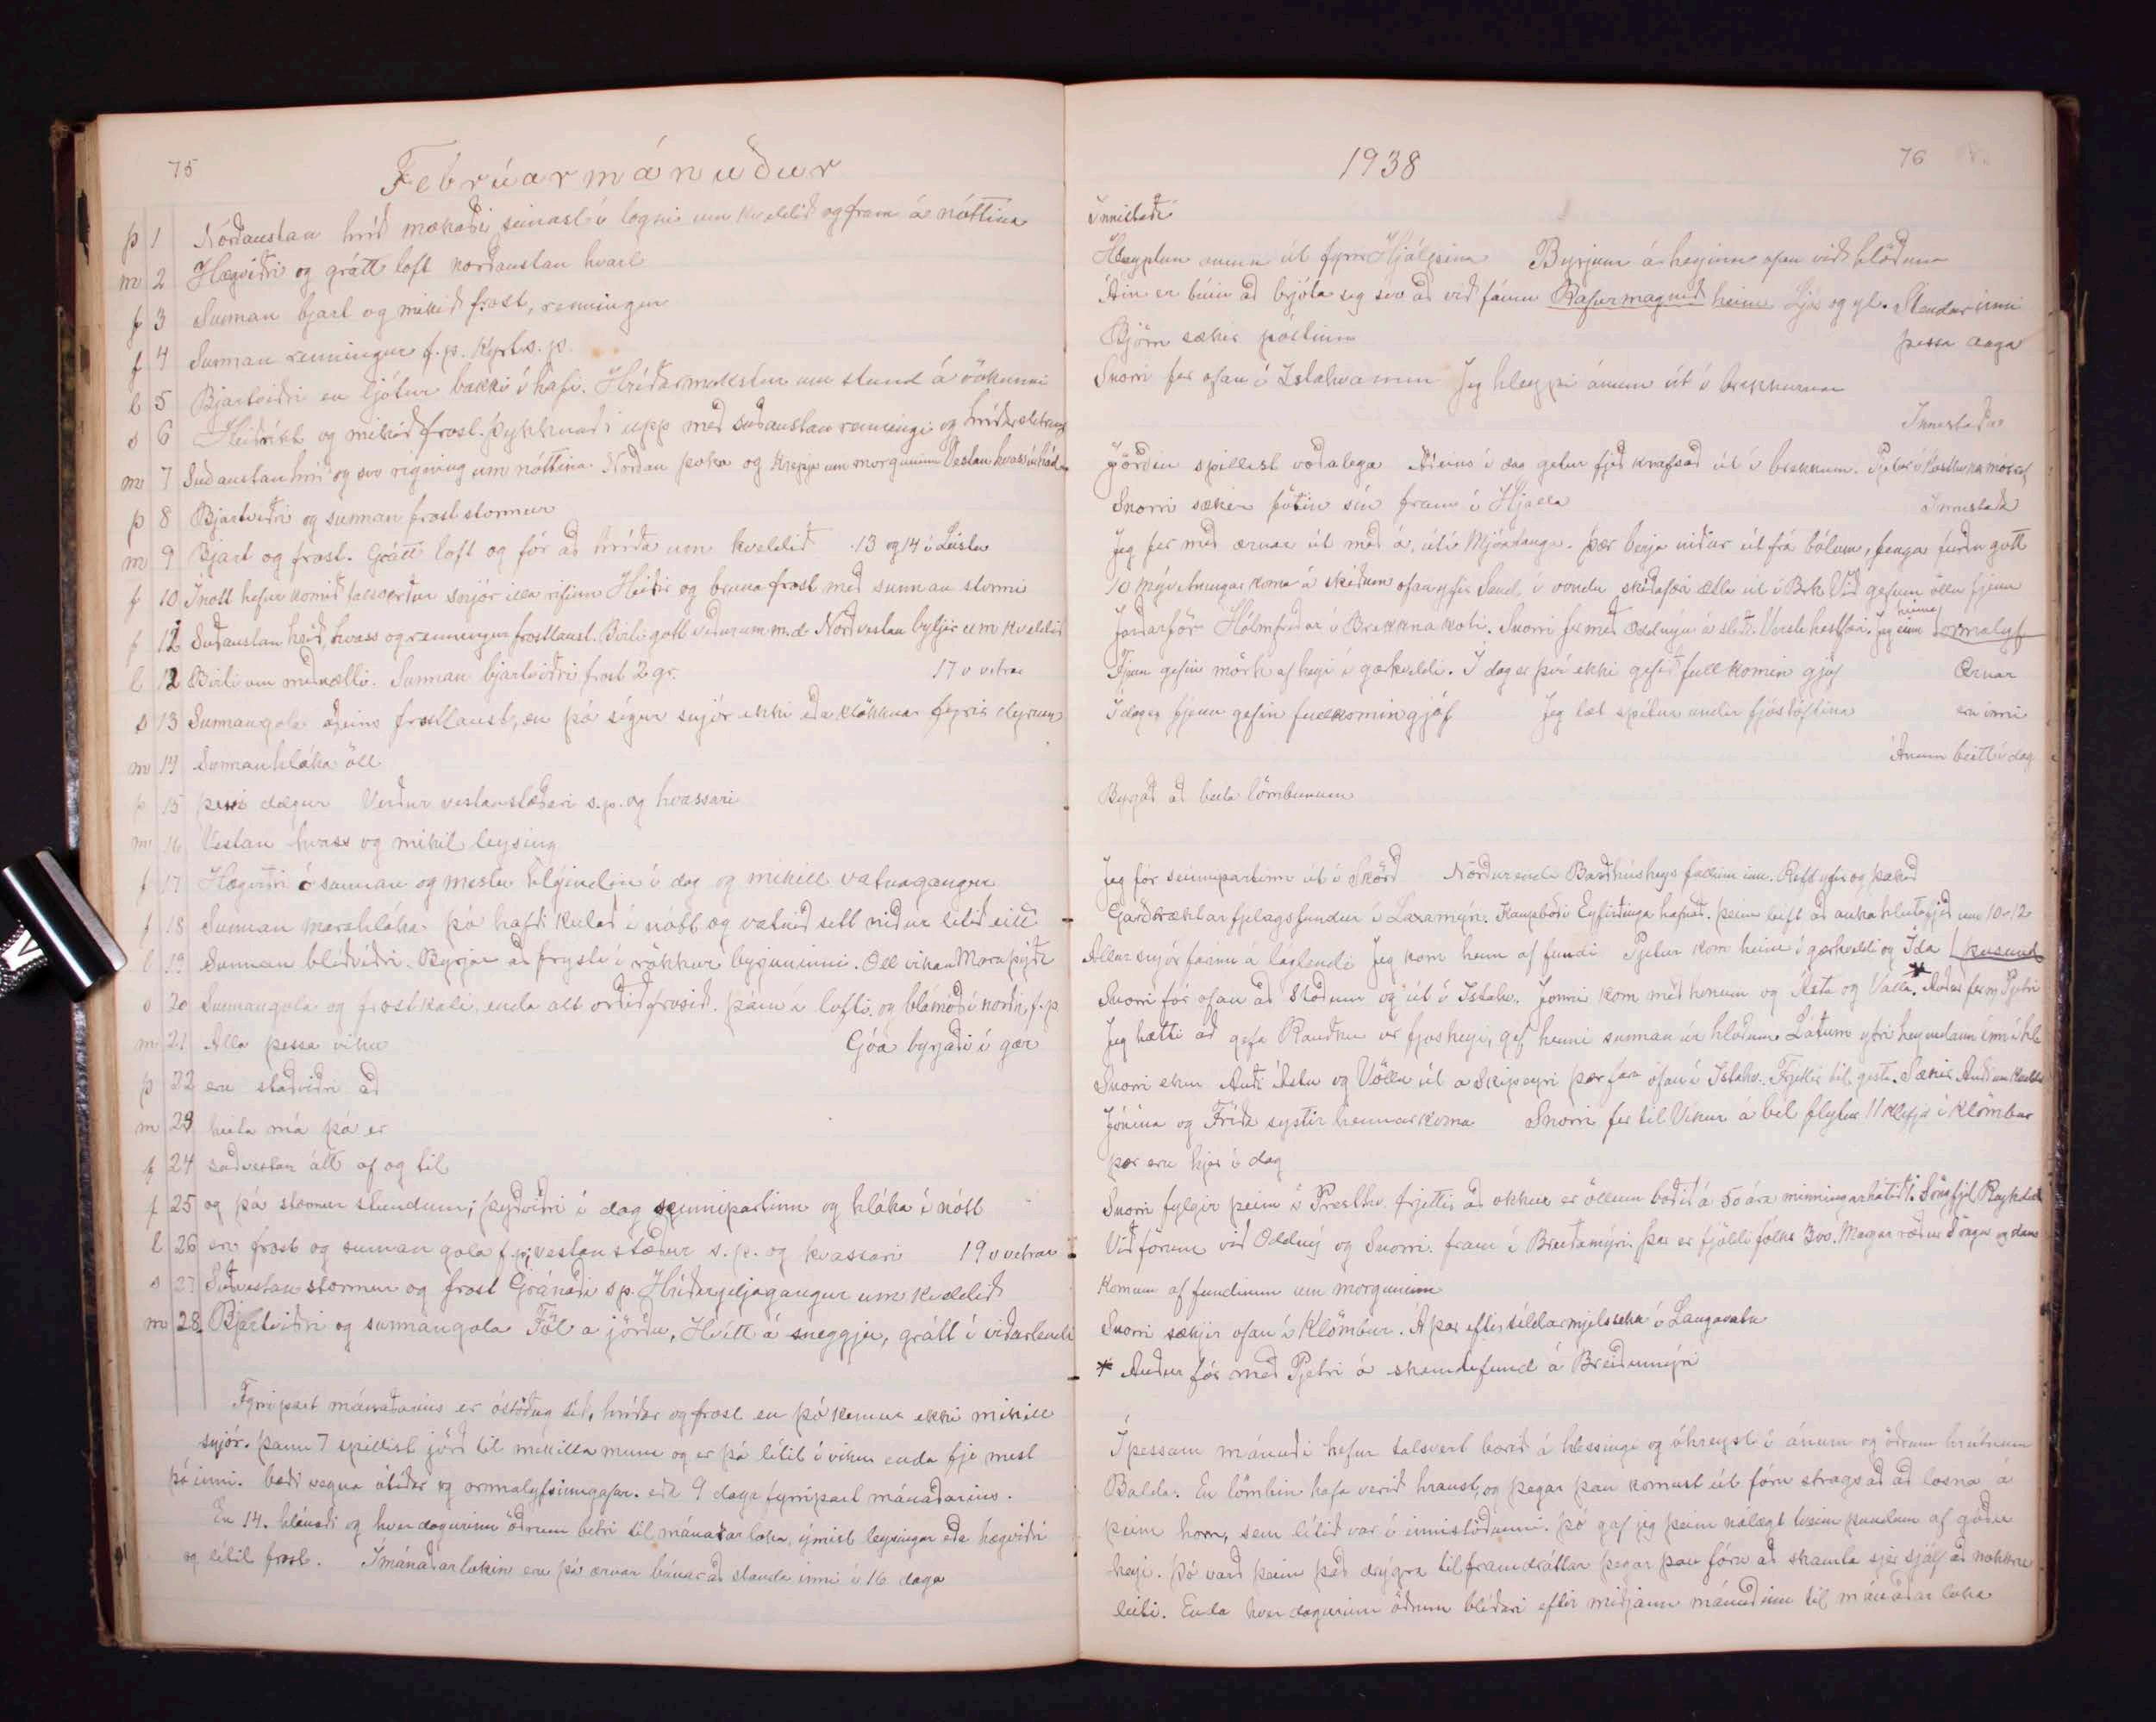 75
Febrúarmánuður
þ 1 Norðaustan hríð mokaði seinast í logni um kveldið og fram á nóttina
m 2 Hægviðri og grátt loft norðaustan hvasl
f 3 Sunnan bjart og mikið frost, renningur
f 4 Sunnan renningur f.p. Kyrt s.p.
l 5 Bjartviðri en ljótur bakki í hafi. Hríðarmokstur um stund á vökunni
s 6 Heiðríkt og mikið frost. Þykknaði upp með suðaustan renningi og
m 7 Suðaustan hríð og svo rigning um nóttina. Norðan þoka og krepja um morguninn Vestan hvass
þ 8 Bjartviðri og sunnan froststormur
m 9 Bjart og frost. Grátt loft og fór að hríða um kveldið 13 og 14 v Leista
f 10 Í nótt hefur komið talsverður snjór illa rifinn Heiðir og bruna frost með sunnan stormi
f 11 Suðaustan hríð, hvass og renningur frostlaust. Birti gott veður um m.d. Norðvestan byljir um kveldið
l 12 Birti um miðnætti. Sunnan bjartviðri frost 2 gr. 17 v vetrar
s 13 Sunnangola aðeins frostlaust, en þó sígur snjór ekki eða klökknar fyrir dyrum
m 14 Sunnanhláka öll
þ 15 þessi dægur Verður vestanstæðari s.p. og hvassari
m 16 Vestan hvass og mikil leysing
f 17 Hægviðri á sunnan og mestu hlýindin í dag og mikill vatnagangur
f 18 Sunnan marahláka. þó hafði kulað í nótt og vatnið sett niður lítið eitt
l 19 Sunnan blíðviðri. Byrjar að frysta í rökkur byrjuninni. Öll vikan Mara þýðe
s 20 Sunnangola og frostkali, enda alt orðið frosið. Þám í lofti og blámóð í norðri, f.p
m 21 Alla þessa viku Góa byrjaði í gær
þ 22 eru staðviðri að
m 23 heita má þó er
f 24 suðvestan átt af og til
f 25 og þá stormur stundum; þeyðviðri í dag seinnipartinn og hláka í nótt
l 26 en frost og sunnan gola f.p; vestanstæður s.p. og hvassari 19 v vetrar
s 27 Suðvestan stormur og frost Gránaði s.p. Hríðaréljagangur um kveldið
m 28 Bjartviðri og sunnangola Föl á jörðu, Hvítt á sneggju, grátt í viðarlendi
Fyrripart mánaðarins er óstöðug tíð, hríðar og frost en þó kemur ekki mikill
snjór. Þann 7 spillist jörð til mikilla muna og er þá lítið í viku enda fje mest
þá inni. bæði vegna ótíðar og ormalyfsinngjafar. eða 9 daga fyrripart mánaðarins.
En 14. hlánaði og hver dagurinn öðrum betri til mánaðarloka, ýmist leysingar eða hægviðri
og lítil frost. Í mánaðarlokin eru þá ærnar búnar að standa inni í 16 daga
1938
76
Innistaða
Hleyptum ánum út fyrir Hjálpina Byrjum á heyinu ofan við hlöðuna
Áin er búin að brjóta sig svo að við fáum Rafurmagnið heim Ljós og yl. Standur inni
Björn sækir póstinn þessa daga
Snorri fer ofan í Ístahvamm Jeg hleypi ánum út í brekkurnar
Innistaða
Jörðin spillist voðalega Aðeins í dag getur fjeð krafsað út í brekkum. Pjetur
Snorri sækir fötin sín fram í Hjalla Innistaða
Jeg fer með ærnar út með á, út í Mjóadanga. Þær berja niður út frá bólum, fengu furðu gott
10 Mývetningar koma á skíðum ofan yfir Sand í vondu skíðafæri ætla út í Brh. Við gefum öllu fjenu
Jarðarför Hólmfríðar í Brekknakoti. Snorri fer með Oddnýu á sleða Versta hestfæri. Jeg einn heima Ormalyf
Fjenu gefin mörk af heyi í gærkveldi. Í dag er því ekki gefið fullkomin gjöf Ærnar
Í dag er fjenu gefin fullkomin gjöf Jeg læt spítur undir fjóstóftina eru inni
Ánum beitt í dag
Byrjað að beita lömbunum
Jeg fór seinnipartinn út í Skörð Norðurendi Baðhúsheys fallinn inn. Reft yfir og þakið
Garðræktarfjelagsfundur í Laxamýri. Kaupboði Eyfirðinga hafnað. Þeim leift að auka hlutafjeð um 10-12
Allur snjór farinn á láglendi Jeg kom heim af fundi Pjetur kom heim í gærkveldi og Ída þúsund
Snorri fór ofan að Stöðum og út í Ístahv. Jonni kom með honum og Ásta og Valla.* Auður fer og Pjetri
Jeg hætti að gefa Rauðku úr fjósheyi, gef henni sunnan úr hlöðum. Látum ytri heyendann inn í hl
Snorri ekur Auði Ástu og Völlu út á Skipseyri þær fara ofan í Ístahv. Frjettir til gesta. Sækir Auði um kveldið
Jónína og Fríða systir hennar koma Snorri fer til Víkur á bíl flytur 11 klyfja í Klömbur
þær eru hjer í dag
Snorri fylgir þeim í Presthv. frjettir að okkur er öllum boðið á 50 ára minningarhátíð. Söngfjel Reykdæl
Við förum við Oddný og Snorri fram í Breiðumýri. Þar er fjöldi fólks 300. Margar ræður söngur og dans
Komum af fundinum um morguninn
Snorri sækir ofan í Klömbur. Á þar eftir síldarmjelssekk í Langavatn
* Auður fór með Pjetri á skemtifund á Breiðumýri
Í þessum mánuði hefur talsvert borið á hlessingi og óhreysti í ánum og öðrum hrútnum
Balda. En lömbin hafa verið hraust, og þegar þau komust út fóru strags að losna á
þeim horn, sem lítið var í innistöðunni. Þó gaf jeg þeim nálægt tveim pundum af góðu
heyi. Þó varð þeim það drýgra til framdráttar þegar þau fóru að skamta sjer sjálf að nokkru
leiti. Enda hver dagurinn öðrum blíðari eftir miðjann mánuðinn til mánaðarloka